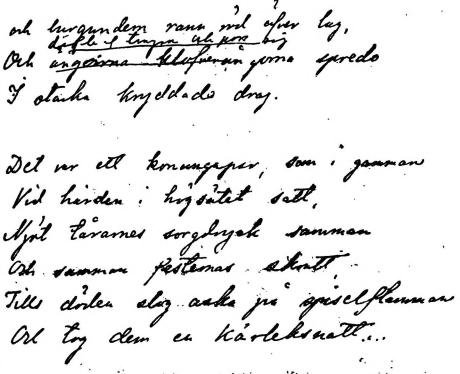 och burgundern rann röd öfver lag,
doft af
Och ångorna spredo
I starka kryddade drag.
Det var ett konungapar, som i gamman
Vid härden i högsätet satt,
Njöt tårarnes sorgdryck samman
Och samman festernas skratt,
Tills döden slog aska på spiselflamman
Och tog dem en kärleksnatt...